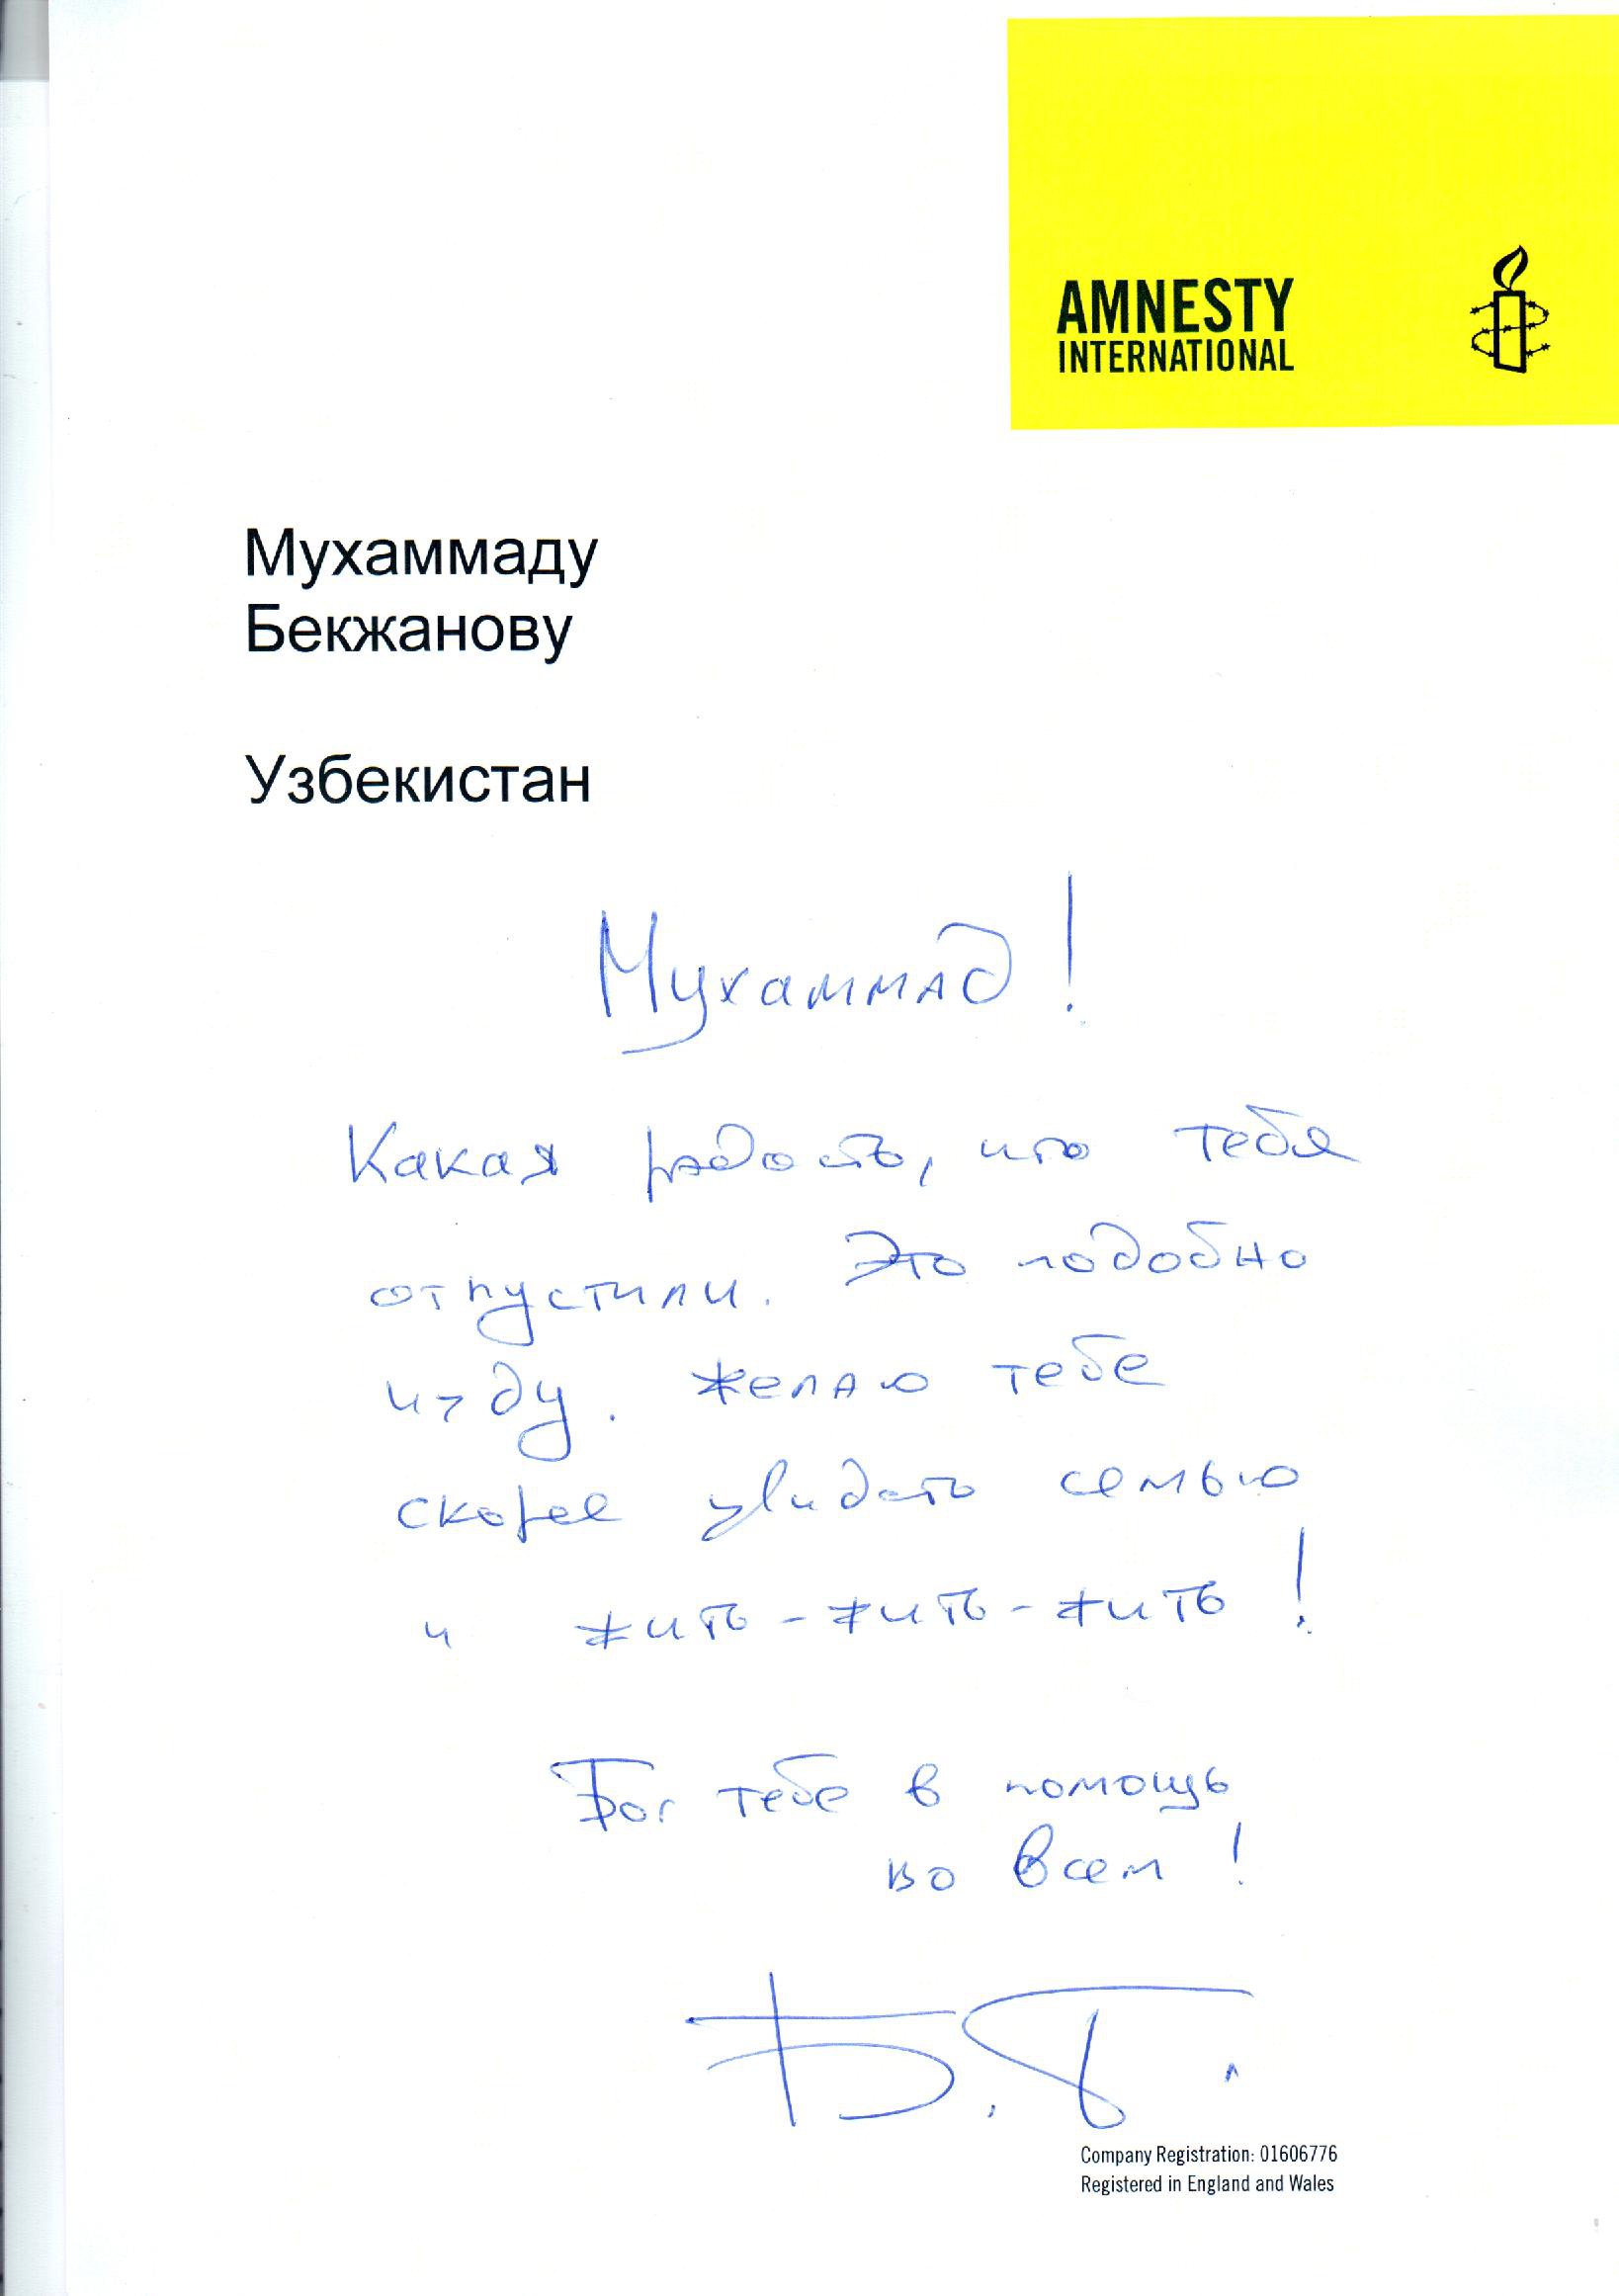 AMNESTY
INTERNATIONAL
Мухаммаду
Бекжанову
Узбекистан
Мухаммад!
Какая радость, что тебя
отпустили. Это подобно
чуду. Желаю тебе
скорее увидать семью
и жить-жить-жить!
Бог тебе в помощь
во всем!
Б. Г.
Company Registration: 01606776
Registered in England and Wales